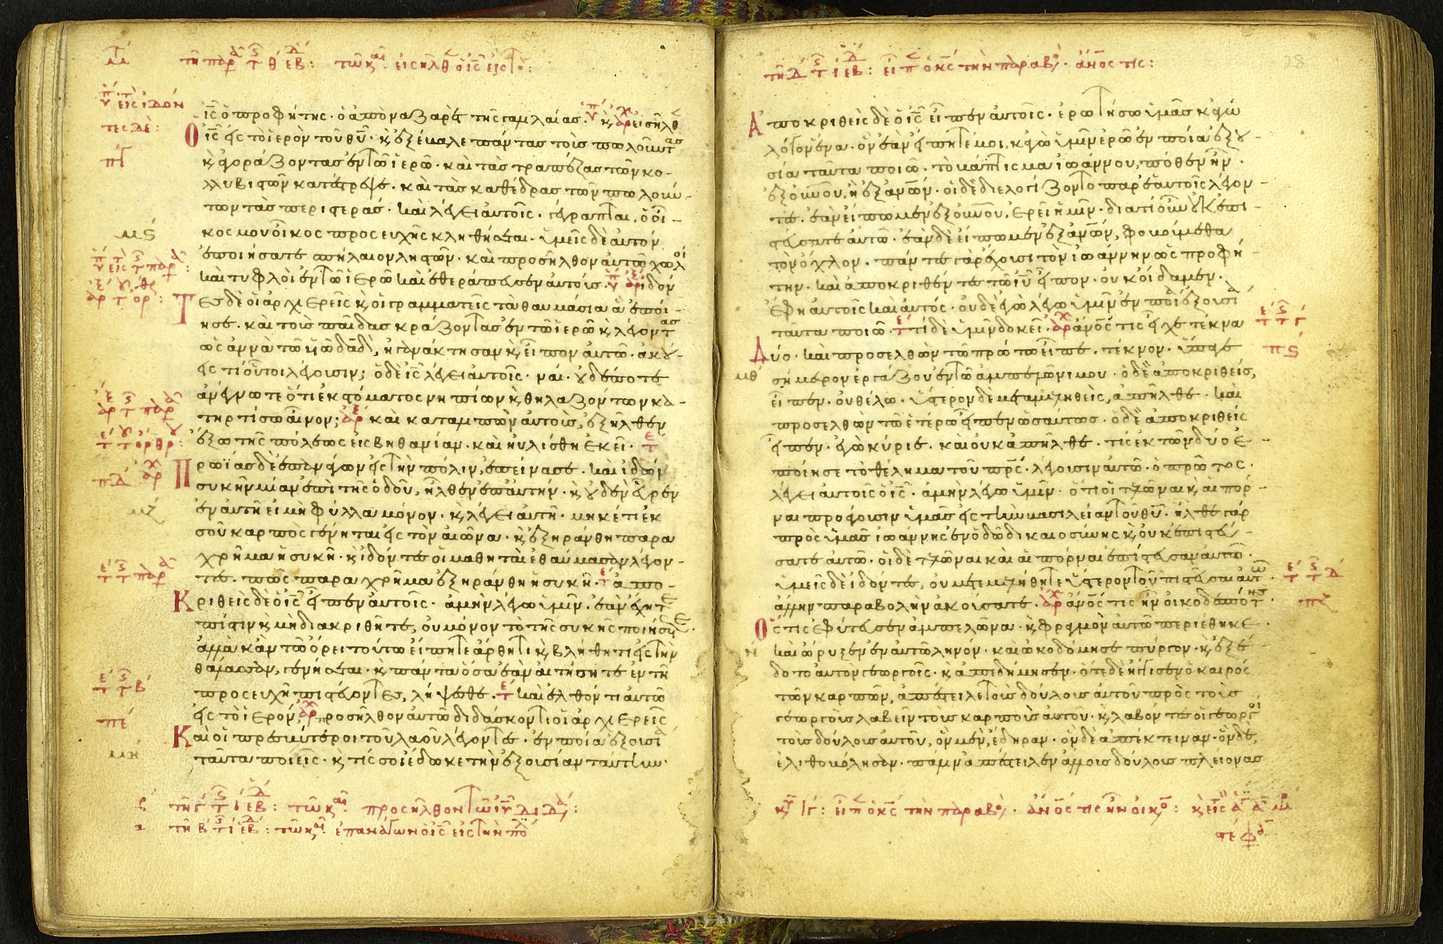 ις ὁ προφήτης· ὁ ἀπὸ ναζαρὲτ τῆς γαλιλαίας· κ εἰσῆλθ
Ὁ ις εἰς τὸ ἱερὸν τοῦ θυ· κ ἐξέβαλε πάντας τοὺς πωλοῦντας
κ ἀγοράζοντας ἐν τῷ ἱερῷ· καὶ τὰς τραπέζας τῶν κο-
λλυβιστῶν κατέστρεψε· καὶ τὰς καθέδρας τῶν πωλούν-
των τὰς περιστεράς· καὶ λέγει αὐτοῖς· γέγραπται, ὁ οἶ-
κός μου οἶκος προσευχῆς κληθήσεται· ὑμεῖς δὲ αὐτὸν
ἐποιήσατε σπήλαιον ληστῶν· καὶ προσῆλθον αὐτῷ χωλοὶ
καὶ τυφλοὶ ἐν τῷ ἱερῷ καὶ ἐθεράπευσεν αὐτούς· ἰδόν
Τες δὲ οἱ ἀρχιερεῖς κ οἱ γραμματεῖς τὰ θαυμάσια ἃ ἐποί-
ησε· καὶ τοὺς παῖδας κράζοντας ἐν τῷ ἱερῷ κ λέγοντας
ὡς ἀννὰ τῷ υἱῷ δαδ, ἠγανάκτησαν κ εἶπον αὐτῷ· ἀκού-
εις τί οὗτοι λέγουσιν; ὁ δὲ ις λέγει αὐτοῖς· ναί· οὐδέποτε
ἀνέγνωτε ὅτι ἐκ στόματος νηπίων κ θηλαζόντων κα-
τηρτίσω αἶνον; καὶ καταλιπὼν αὐτοὺς, ἐξῆλθεν
ἔξω τῆς πόλεως εἰς βηθανίαν· καὶ ηὐλίσθη ἐκεῖ·
Πρωΐας δὲ ἐπανάγων εἰς τὴν πόλιν, ἐπείνασε· καὶ ἰδὼν
συκῆν μίαν ἐπὶ τῆς ὁδοῦ, ἦλθεν ἐπ αὐτήν· κ οὐδὲν εὗρεν
ἐν αὐτῇ εἰ μὴ φύλλα μόνον· κ λέγει αὐτῇ· μηκέτι ἐκ
σοῦ καρπὸς γένηται εἰς τὸν αἰῶνα· κ ἐξηράνθη παρα
χρῆμα ἡ συκῆ· κ ἰδόντες οἱ μαθηταὶ ἐθαύμασαν λέγον-
τες· πῶς παραχρῆμα ἐξηράνθη ἡ συκῆ· ἀπο-
Κριθεὶς δὲ ὁ ις εἶπεν αὐτοῖς· ἀμὴν λέγω ὑμῖν· ἐὰν ἔχητε
πίστιν κ μὴ διακριθῆτε, οὐ μόνον τὸ τῆς συκῆς ποιήσετε·
ἀλλὰ κἂν τῷ ὄρει τούτῳ εἴπητε ἄρθητι κ βλήθητι εἰς τὴν
θάλασσαν, γενήσεται· κ πάντα ὅσα ἐὰν αἰτήσητε ἐν τῇ
προσευχῇ πιστεύοντες, λήψεσθε· καὶ ἐλθόντι αὐτῷ
εἰς τὸ ἱερὸν, προσῆλθον αὐτῷ διδάσκοντι οἱ ἀρχιερεῖς
Καὶ οἱ πρεσβύτεροι τοῦ λαοῦ λέγοντες· ἐν ποίᾳ ἐξουσίᾳ
ταῦτα ποιεῖς· κ τίς σοι ἔδωκε τὴν ἐξουσίαν ταύτην·
Ἀποκριθεὶς δὲ ὁ ις εἶπεν αὐτοῖς· ἐρωτήσω ὑμᾶς κἀγὼ
λόγον ἕνα· ὃν ἐὰν εἴπητέ μοι, κἀγὼ ὑμῖν ἐρῶ ἐν ποίᾳ ἐξου-
σίᾳ ταῦτα ποιῶ· τὸ βάπτισμα ἰωάννου, πόθεν ἦν·
ἐξ οὐνου, ἢ ἐξ ἀνων· οἱ δὲ διελογίζοντο παρ ἑαυτοῖς λέγον-
τες· ἐὰν εἴπωμεν ἐξ οὐνου, ἐρεῖ ἡμῖν· διατί οὖν οὐκ ἐπι-
στεύσατε αὐτῷ· ἐὰν δὲ εἴπωμεν ἐξ ἀνων, φοβούμεθα
τὸν ὄχλον· πάντες γὰρ ἔχουσι τὸν ἰωάννην ὡς προφή-
την· καὶ ἀποκριθέντες τῷ ιυ εἶπον· οὐκ οἴδαμεν·
ἔφη αὐτοῖς καὶ αὐτός· οὐδὲ ἐγὼ λέγω ὑμῖν ἐν ποίᾳ ἐξουσίᾳ
ταῦτα ποιῶ· τί δὲ ὑμῖν δοκεῖ· ἀνός τις εἶχε τέκνα
Δύο· καὶ προσελθὼν τῷ πρώτῳ εἶπε· τέκνον· ὕπαγε
σήμερον ἐργάζου ἐν τῷ ἀμπελῶνί μου· ὁ δὲ ἀποκριθεὶς,
εἶπεν· οὐ θέλω· ὕστερον δὲ μεταμεληθεὶς, ἀπῆλθε· καὶ
προσελθὼν τῷ ἑτέρῳ εἶπεν ὡσαύτως· ὁ δὲ ἀποκριθεὶς
εἶπεν· ἐγὼ κύριε· καὶ οὐκ ἀπῆλθε· τίς ἐκ τῶν δύο ἐ-
ποίησε τὸ θέλημα τοῦ πρς· λέγουσιν αὐτῷ· ὁ πρῶτος·
λέγει αὐτοῖς ὁ ις· ἀμὴν λέγω ὑμῖν· ὅτι οἱ τελῶναι κ αἱ πόρ-
ναι προάγουσιν ὑμᾶς εἰς τὴν βασιλείαν τοῦ θυ· ἦλθε γὰρ
πρὸς ὑμᾶς ἰωάννης ἐν ὁδῷ δικαιοσύνης κ οὐκ ἐπιστεύ-
σατε αὐτῷ· οἱ δὲ τελῶναι κ αἱ πόρναι ἐπίστευσαν αὐτῷ·
ὑμεῖς δὲ ἰδόντες, οὐ μετεμελήθητε ὕστερον τοῦ πιστεῦσαι αὐτῷ·
ἄλλην παραβολὴν ἀκούσατε· ἀνός τις ἦν οἰκοδεσπότης·
Ὅστις ἐφύτευσεν ἀμπελῶνα· κ φραγμὸν αὐτῷ περιέθηκε·
καὶ ὤρυξεν ἐν αὐτῷ ληνόν· καὶ ᾠκοδόμησε πύργον· κ ἐξέ-
δοτο αὐτὸν γεωργοῖς· κ ἀπεδήμησεν· ὅτε δὲ ἤγγισεν ὁ καιρὸς
τῶν καρπῶν, ἀπέστειλε τοὺς δούλους αὐτοῦ πρὸς τοὺς
γεωργοὺς λαβεῖν τοὺς καρποὺς αὐτοῦ· κ λαβόντες οἱ γεωργοὶ
τοὺς δούλους αὐτοῦ, ὃν μὲν, ἔδηραν· ὃν δὲ ἀπέκτειναν· ὃν δὲ,
ἐλιθοβόλησαν· πάλιν ἀπέστειλεν ἄλλους δούλους πλείονας